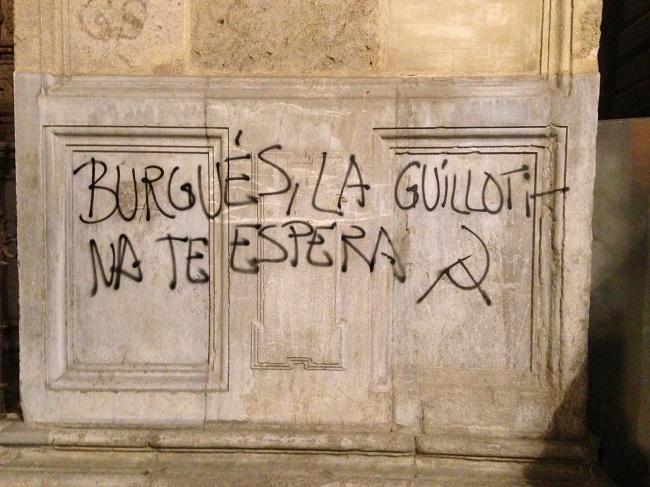 BURGUÉS, LA GUILLOTI-
NA TE ESPERA